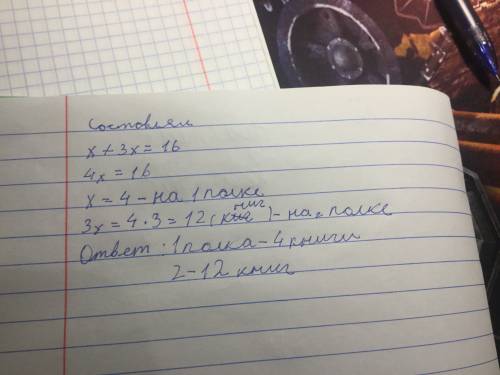 Составляем
x + 3x = 16
4x = 16
x = 4 - на 1 полке
3x = 4 · 3 = 12 (книг) - на 2 полке
Ответ: 1 полка - 4 книги
2 - 12 книг